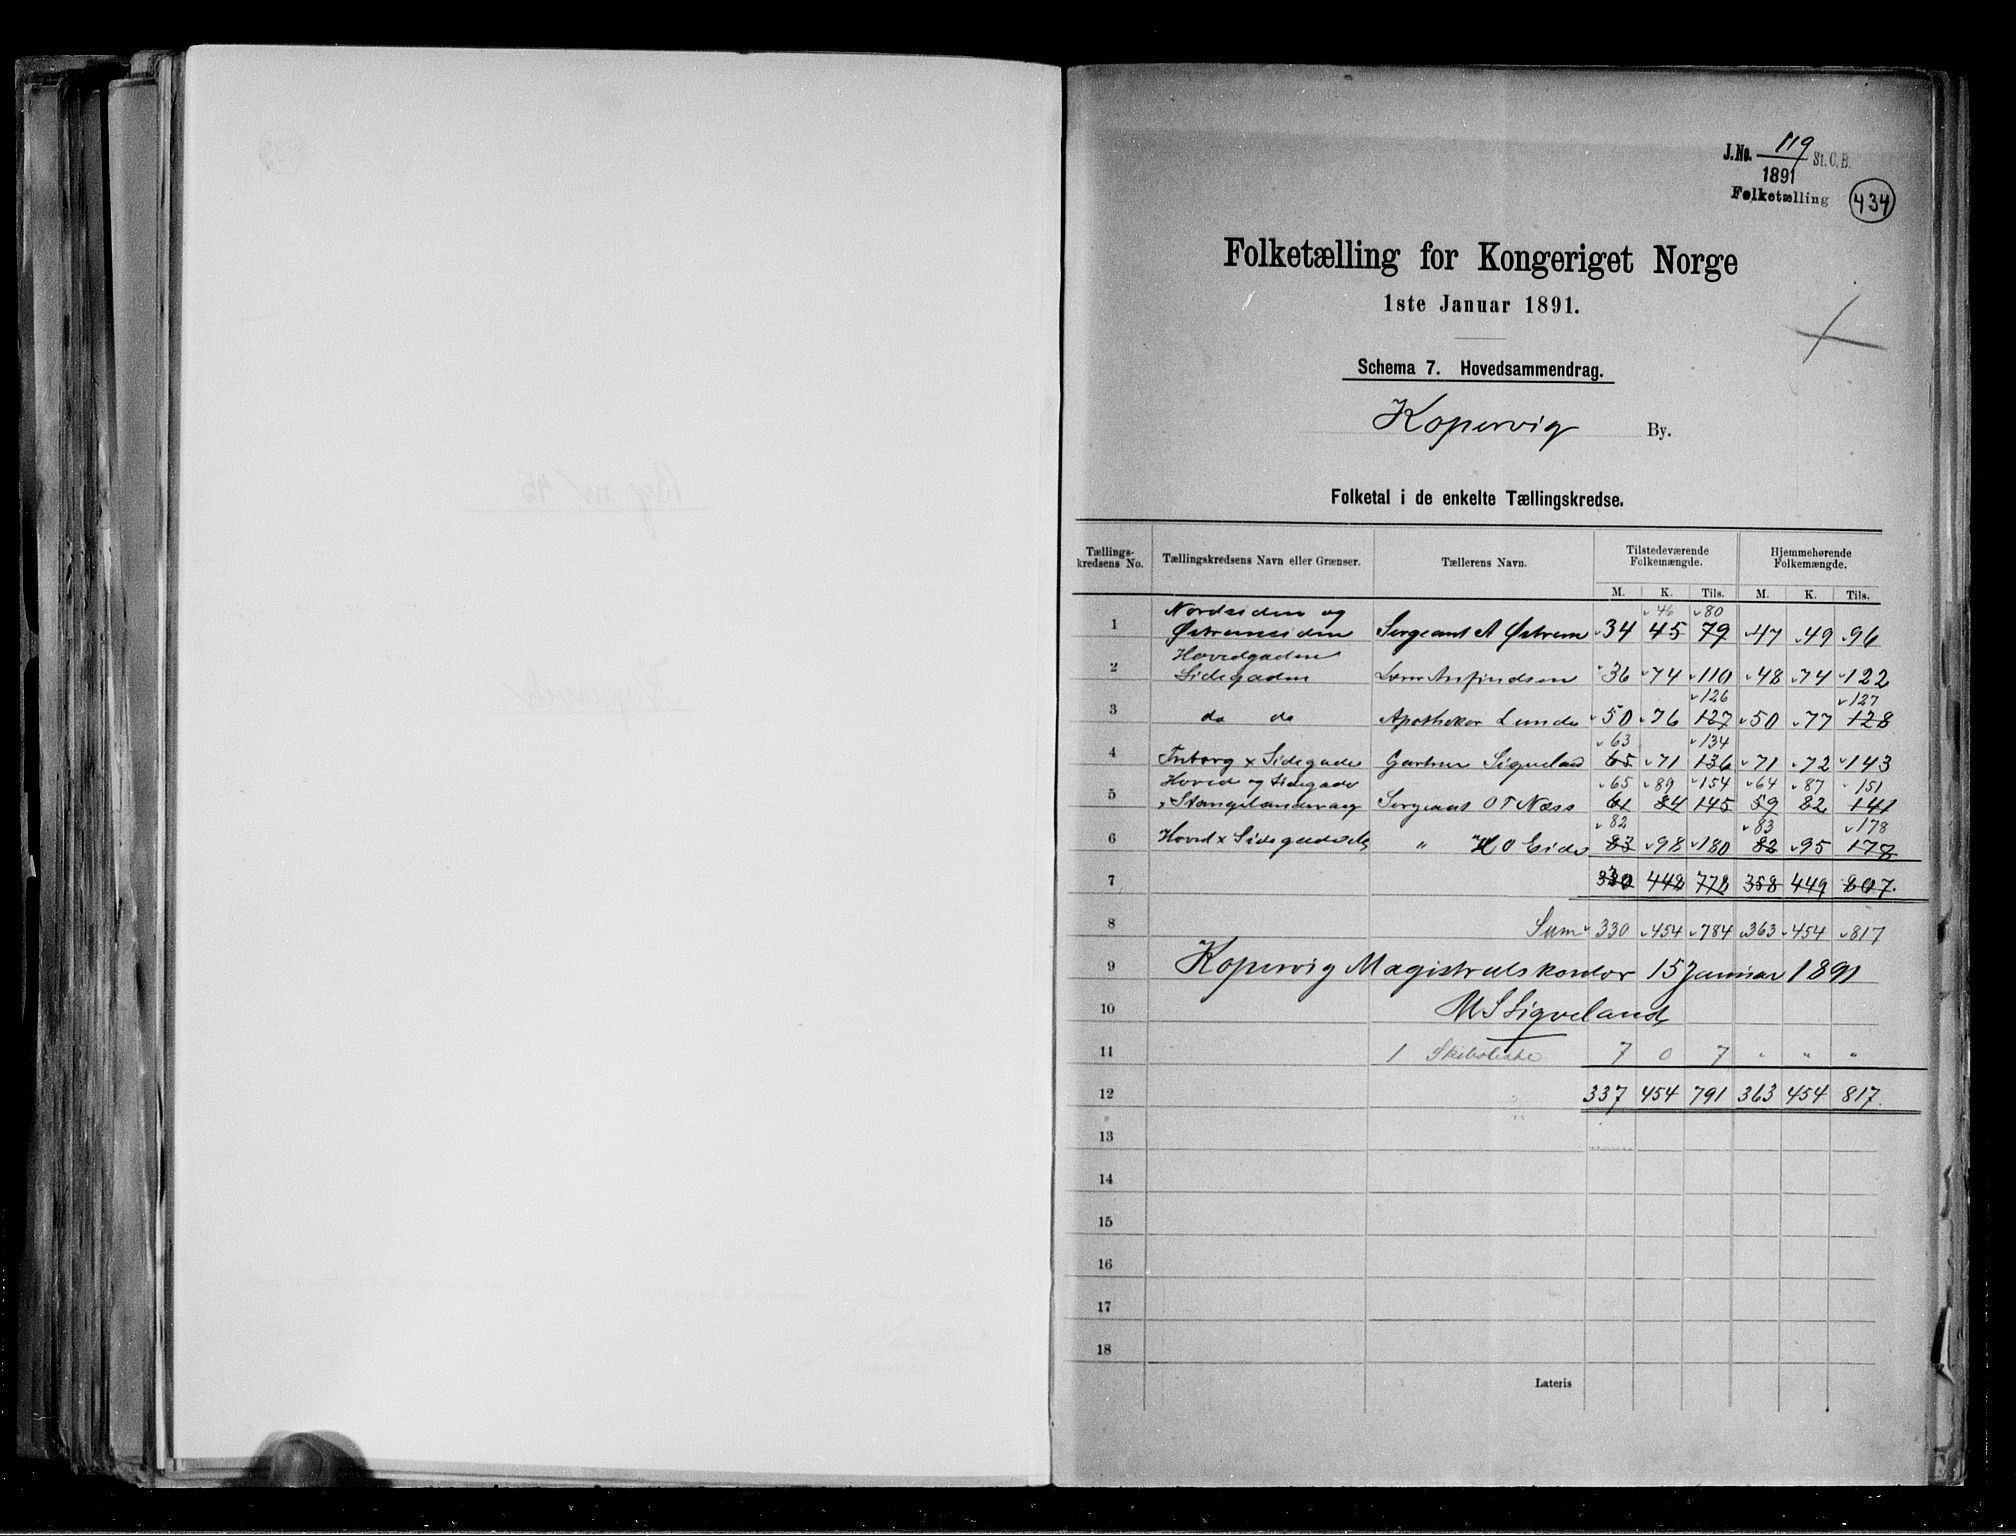 J.No. 119 St. C. B.
1891
Folketælling
434
Folketælling for Kongeriget Norge
1ste Januar 1891.
Schema 7. Hovedsammendrag.
Kopervig By.
Folketal i de enkelte Tællingskredse.
Tællings-kredsens No. Tællingskredsens Navn eller Grænser. Tællerens Navn. Tilstedeværende Folkemængde. Hjemmehørende Folkemængde.
M. K. Tils. M. K. Tils.
Nordsiden og 46 80
1 Østremsiden Sergeant A Østrem 34 45 79 47 49 96
Hovedgaden
2 Sidegaden Anfindsen 36 74 110 48 74 122
126 127
3 do do Apotheker Lunde 50 76 127 50 77 128
63 134
4 Sidegade Gartner Siqveland 65 71 136 71 72 143
Hoved og Sidegade 65 89 154 64 87 151
5 Sergeant O T Næss 61 84 145 59 82 141
82 83 178
6 Hoved x " H O Eide 83 98 180 82 95 177
7 330 448 778 358 449 807.
8 Sum 330 454 784 363 454 817
9 Kopervig Magistratskontor 15 Januar 1891
10 M S Siqveland
11 1 Skibsliste 7 0 7 " " "
12 337 454 791 363 454 817.
13
14
15
16
17
18
Lateris